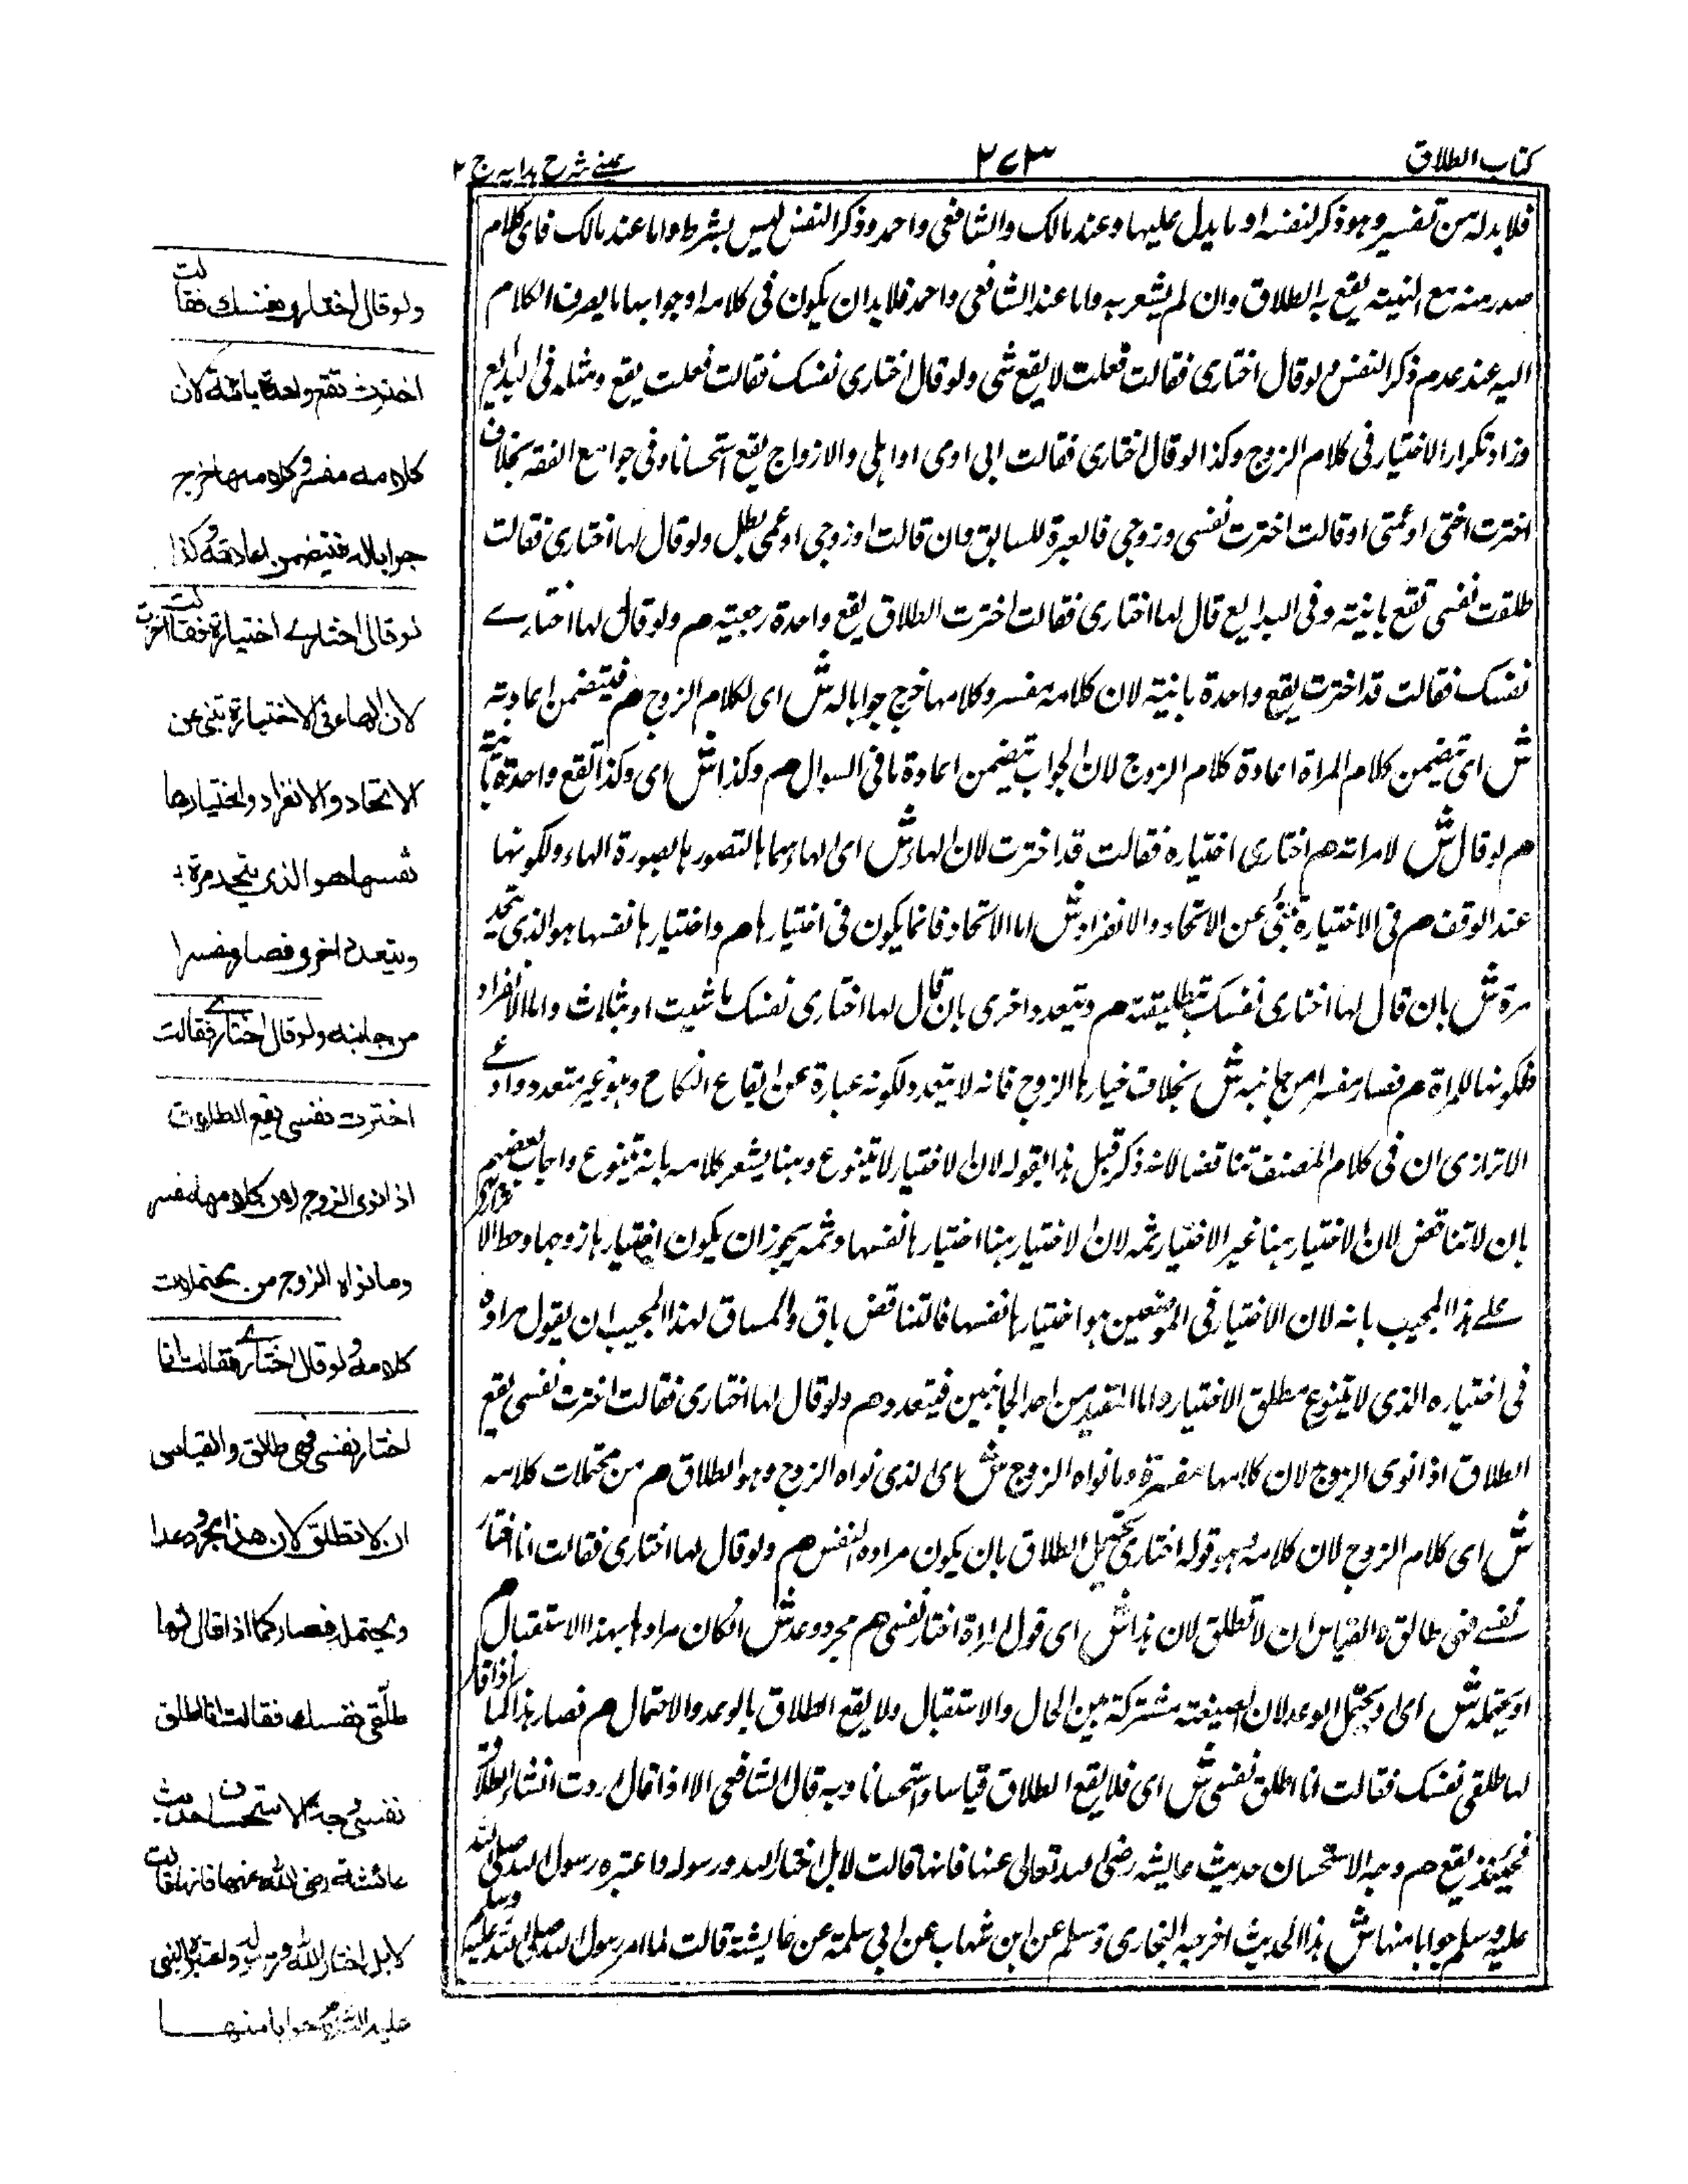 كتاب الطلاق
٢٧٣
عينى شرح هدايه ج ٢
فلا بد له من تفسير وهو ذكر لنفسه او ما يدل عليها وعند مالك والشافعى واحمد وذكر النفس ليس بشرط واما عند مالك فاى كلام
صدر منه مع النية يقع به الطلاق وان لم يشعر به واما عند الشافعى واحمد فلا بد ان يكون فى كلامه او جوابها ما يصرف الكلام
اليه عند عدم ذكر النفس م لو قال اختارى فقالت فعلت لا يقع شى ولو قال اختارى نفسك فقالت فعلت يقع ومثله فى البدايع
وزاد تكرار الاختيار فى كلام الزوج وكذا لو قال اختارى فقالت ابى او امى او اهلى والازواج يقع استحسانا وفى جوامع الفقه بخلاف
اخترت اختى او عمتى او قالت اخترت نفسى وزوجى فالعبرة للسابق وان قالت او زوجى او عمى بطل ولو قال لها اختارى فقالت
طلقت نفسى تقع باينة وفى البدايع قال لها اختارى فقالت اخترت الطلاق يقع واحدة رجعية م ولو قال لها اختارے
نفسك فقالت قد اخترت يقع واحدة باينة لان كلامه مفسر وكلامها خرج جوابا له ش اى لكلام الزوج م فيتضمن اعادته
ش اى يتضمن كلام المراة اعادة كلام الزوج لان الجواب يتضمن اعادة ما فى السوال م وكذا ش اى وكذا تقع واحدة باينة
م لو قال ش لامراته م اختارى اختياره فقالت قد اخترت لان الهاء ش اى الهاء وسماها بالتصورها بصورة الهاء ولكونها
عند الوقف م فى الاختيارة تنبئ عن الاتحاد والانفراد ش اما الاتحاد فانما يكون فى اختيارها م واختيارها نفسها هو الذى يتحد
مرة ش بان قال لها اختارى نفسك بتطليقة م ويتعدد اخرى بان قال لها اختارى نفسك ما شيت او بثلاث واما الانفراد
فلكونها للمراة م فصار مفسرا من جانبه ش بخلاف خيارها الزوج فانه لا يتعدد لكونه عبارة عن ايقاع النكاح وهو غير متعدد وادعے
الاترازى ان فى كلام المصنف تناقضا لانه ذكر قبل هذا بقوله لان الاختيار لا يتنوع وهنا يشعر كلامه بانه يتنوع واجاب بعضهم
بان لا تناقض لان الاختيار هنا غير الاختيار ثمه لان الاختيار هنا اختيارها نفسها وثمه يجوز ان يكون اختيارها زوجها وحط الا
علے هذا المجيب بانه لان الاختيار فى الموضعين هو اختيارها نفسها فالتناقض باق والمساق لهذا المجيب ان يقول مراده
فى اختياره الذى لا يتنوع مطلق الاختيار واما التقيد من احد الجانبين فيتعدد م ولو قال لها اختارى فقالت اخترت نفسى يقع
الطلاق اذا نوى الزوج لان كلامها مفسرة وما نواه الزوج ش اى الذى نواه الزوج وهو الطلاق م من محتملات كلامه
ش اى كلام الزوج لان كلامه وهو قوله اختارى يحتمل الطلاق بان يكون مراده النفس م ولو قال لها اختارى فقالت انا اختار
نفسے فهى طالق والقياس ان لا تطلق لان هذا ش اى قول المراة اختار نفسى م مجرد وعد ش ان كان مرادها بهذا الاستقبال م
او يحتمله ش اى ويحتمل الوعد لان الصيغة مشتركة بين الحال والاستقبال ولا يقع الطلاق بالوعد والاحتمال م فصار هذا كما اذا قال
لها طلقى نفسك فقالت انا اطلق نفسى ش اى فلا يقع الطلاق قياسا واستحسانا وبه قال الشافعى الا اذا قال اردت انشاء الطلاق
فحينئذ يقع م وجه الاستحسان حديث عايشة رضى الله تعالى عنها فانها قالت لا بل اختار الله ورسوله واعتبره رسول الله صلى الله
عليه وسلم جوابا منها ش هذا الحديث اخرجه البخارى ومسلم عن ابن شهاب عن ابى سلمة عن عايشة قالت لما امر رسول الله صلى الله عليه وسلم
ولو قال اختارى نفسك فقالت
اخترت تقع واحدة بائنة لان
كلامه مفسر وكلامها خرج
جوابا له فيتضمن اعادته وكذا
لو قال اختارے اختيارة فقالت اخترت
لان الهاء فى الاختيارة تنبئ عن
الاتحاد والانفراد واختيارها
نفسها هو الذى يتحد مرة
ويتعدد اخرى فصار مفسرا
من جانبه ولو قال اختارے فقالت
اخترت نفسى يقع الطلاق
اذا نوى الزوج لان كلامها مفسر
وما نواه الزوج من محتملات
كلامه ولو قال اختارے فقالت انا
اختار نفسى فهى طالق والقياس
ان لا تطلق لان هذا مجرد وعد ا
و يحتمله فصار كما اذا قال لها
طلّقى نفسك فقالت انا اطلق
نفسى وجه الاستحسان حديث
عائشة رضى الله عنها فانها قالت
لا بل اختار الله ورسوله واعتبره النبى
عليه السلام جوابا منها